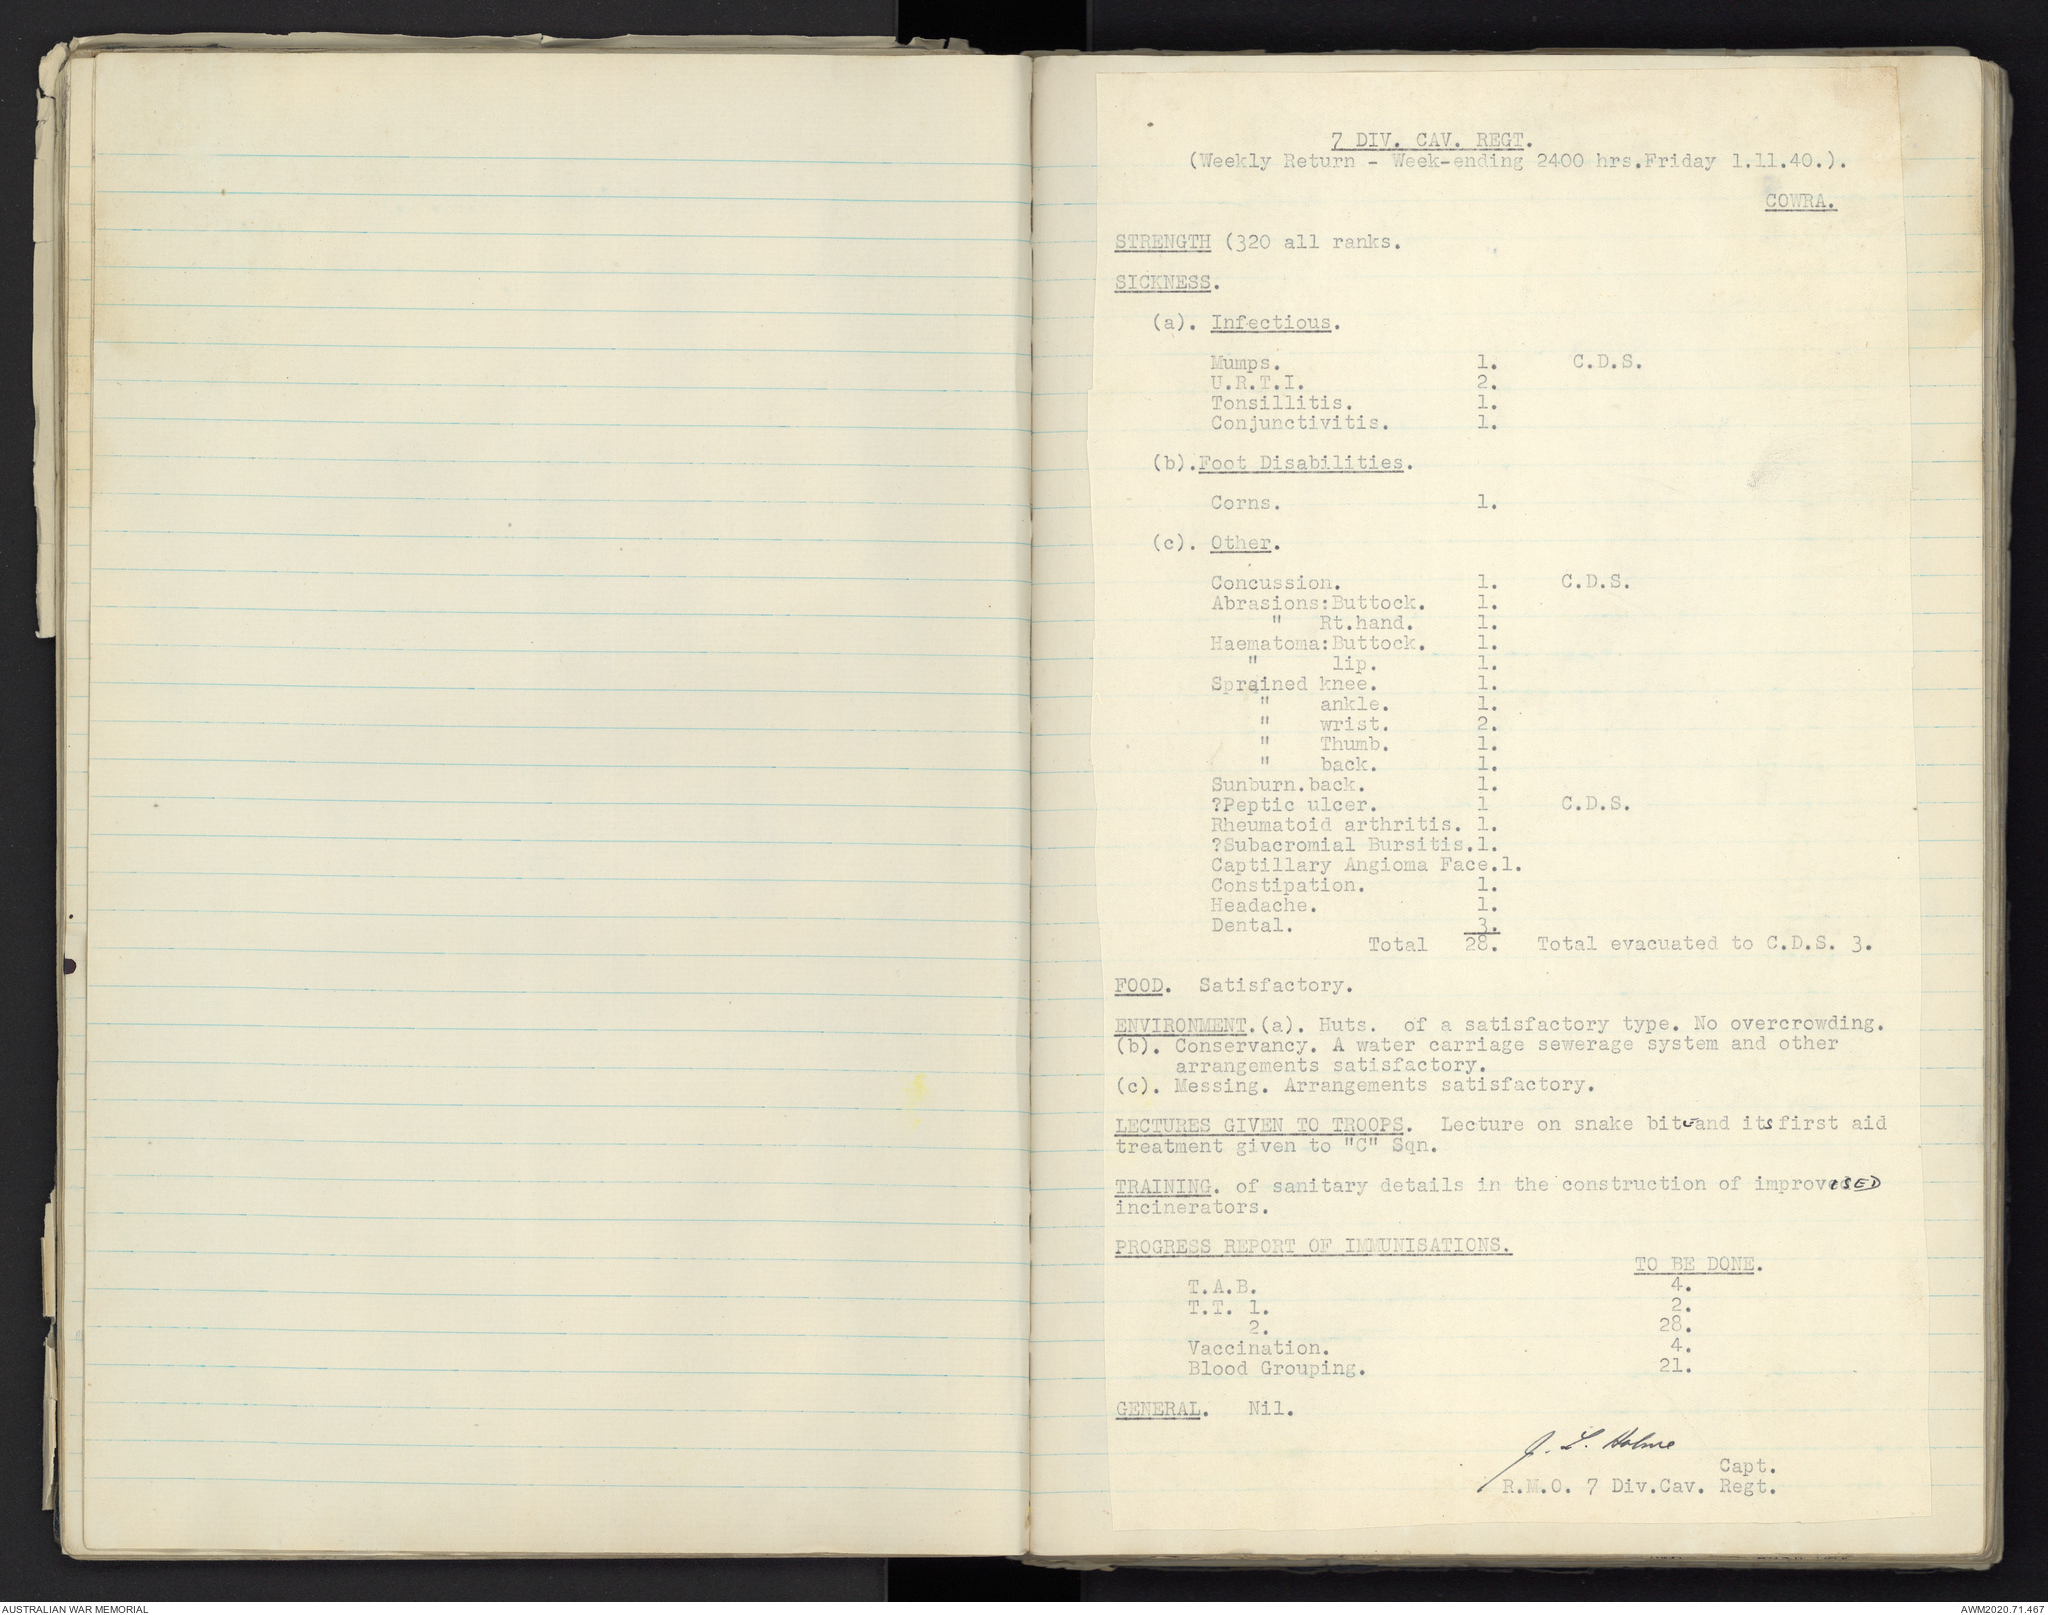 7 DIV. CAV. REGT.
(Weekly Return - Week-ending 2400 hrs.Friday 1.11.40.).
COWRA.
STRENGTH (320 all ranks.
SICKNESS.
(a). Infectious.
Mumps. 1. C.D.S.
U.R.T.I. 2.
Tonsillitis. 1.
Conjunctivitis. 1.
(b).Foot Disabilities.
Corns. 1.
(c). Other.
Concussion. 1. C.D.S.
Abrasions:Buttock. 1.
" Rt.hand. 1.
Haematoma:Buttock. 1.
" lip. 1.
Sprained knee. 1.
" ankle. 1.
" wrist. 2.
" Thumb. 1.
" back. 1.
Sunburn.back. 1.
?Peptic ulcer. 1 C.D.S.
Rheumatoid arthritis. 1.
?Subacromial Bursitis.1.
Captillary Angioma Face.1.
Constipation. 1.
Headache. 1.
Dental. 3.
Total 28. Total evacuated to C.D.S. 3.
FOOD. Satisfactory.
ENVIRONMENT.(a). Huts. of a satisfactory type. No overcrowding.
(b). Conservancy. A water carriage sewerage system and other
arrangements satisfactory.
(c). Messing. Arrangements satisfactory.
LECTURES GIVEN TO TROOPS. Lecture on snake bite and its first aid
treatment given to "C" Sqn.
TRAINING. of sanitary details in the construction of improvisED
incinerators.
PROGRESS REPORT OF IMMUNISATIONS.
TO BE DONE.
T.A.B. 4.
T.T. 1. 2.
2. 28.
Vaccination. 4.
Blood Grouping. 21.
GENERAL. Nil.
J. L. Holme
Capt.
R.M.O. 7 Div.Cav. Regt.
AUSTRALIAN WAR MEMORIAL
AWM2020.71.467